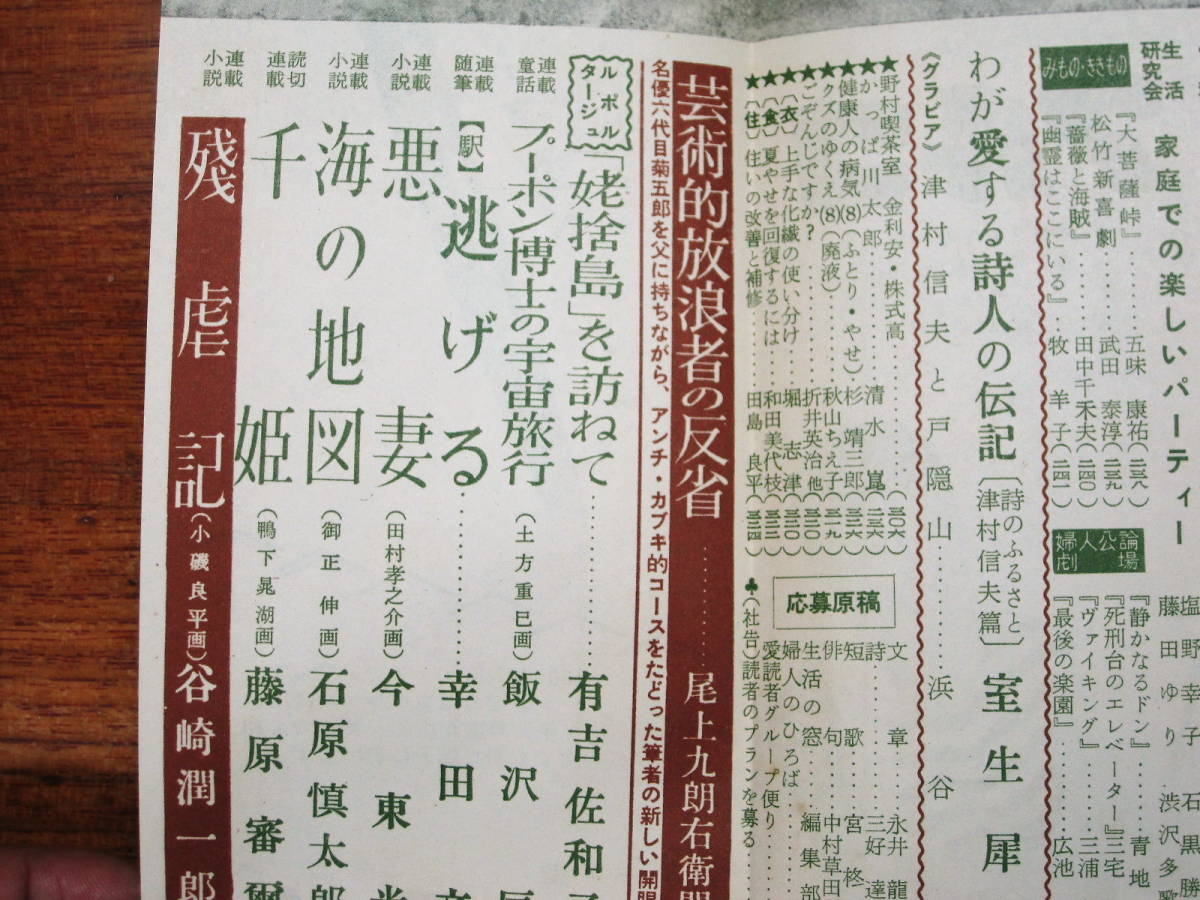 生活研究会
家庭での楽しいパーティー
塩野幸子 石黒勝
藤田ゆり 渋沢多歌
みもの・ききもの
『大菩薩峠』……五味康祐(二三八)
松竹新喜劇……武田泰淳(二三九)
『薔薇と海賊』……田中千禾夫(二四〇)
『幽霊はここにいる』…牧羊子(二四一)
婦人公論劇場
『静かなるドン』……青地
『死刑台のエレベーター』三宅
『ヴァイキング』……三浦
『最後の楽園』……広池
わが愛する詩人の伝記〔詩のふるさと 津村信夫篇〕室生犀
《グラビア》津村信夫と戸隠山……浜谷
★野村喫茶室 金利安・株式高……(二〇六)
★かっぱ川太郎……清水崑(二三六)
★健康人の病気(8)(ふとり・やせ)…杉靖三郎(三二六)
★クズのゆくえ(8)(廃液)……秋山ちえ子(三一九)
★ごぞんじですか?……折井英治他(三二〇)
★〔衣〕上手な化繊の使い分け……堀志津(三二〇)
★〔食〕夏やせを回復するには……和田美代枝(三二二)
★〔住〕住いの改善と補修……田島良平(三二四)
応募原稿
文章……永井龍
詩……三好達
短歌……宮柊
俳句……中村草田
生活の窓…編集部
婦人のひろば……
愛読者グループ便り……
♣(社告)読者のプランを募る……
芸術的放浪者の反省……尾上九朗右衛門
名優六代目菊五郎を父に持ちながら、アンチ・カブキ的コースをたどった筆者の新しい開眼
ルポルタージュ 「姥捨島」を訪ねて……有吉佐和子
連載童話 プーポン博士の宇宙旅行(土方重巳画)飯沢
連載随筆 【駅】逃げる……幸田
連載小説 悪妻(田村孝之介画)今東光
連載小説 海の地図(御正伸画)石原慎太郎
読切連載 千姫(鴨下晁湖画)藤原審爾
連載小説 殘虐記(小磯良平画)谷崎潤一郎